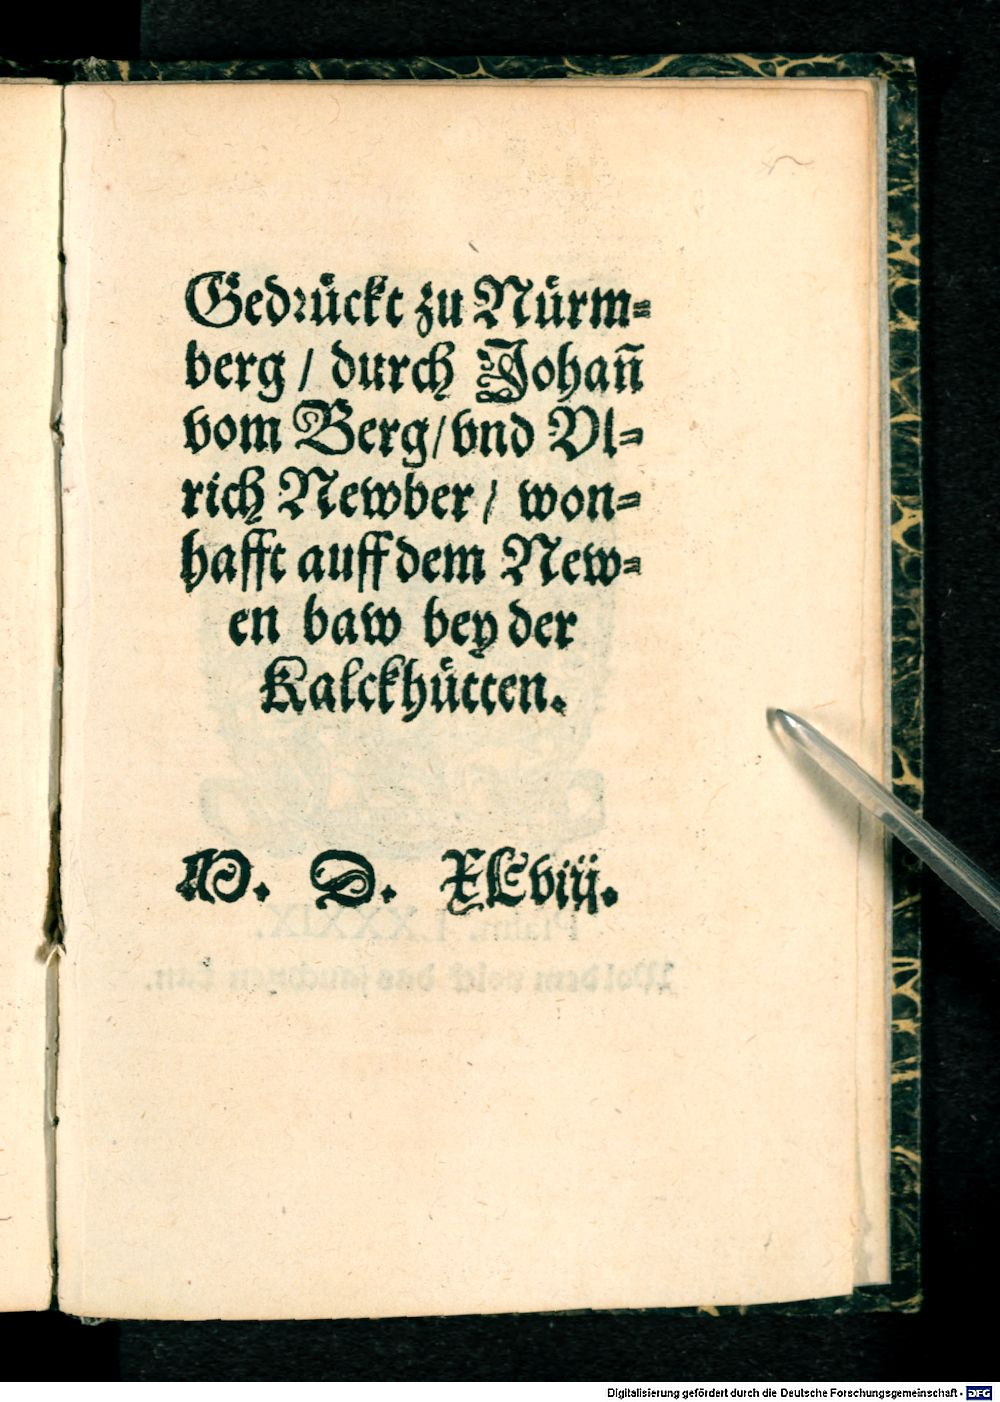 Gedrückt zu Nürm-
berg / durch Johañ
vom Berg / vnd Vl-
rich Newber / won-
hafft auff dem New-
en baw bey der
Kalckhütten.
M. D. XLviij.
Psalm. LXXXIX.
Wol dem volck das jauchtzen kan.
Digitalisierung gefördert durch die Deutsche Forschungsgemeinschaft - DFG